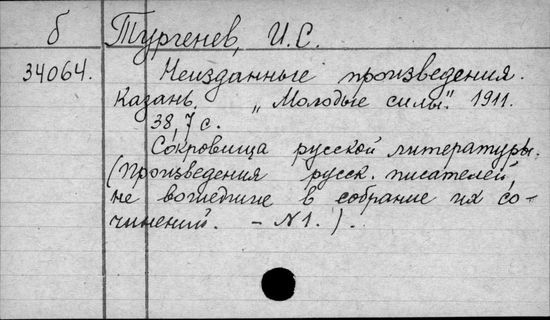 б
Тургенев, И.С.
34064.
Неизданные произведения.
Казань, „Молодые силы". 1911.
38,7 с.
Сокровища русской литературы.
(Произведения русск. писателей,
не вошедшие в собрание их со-
чинений. – N1.).